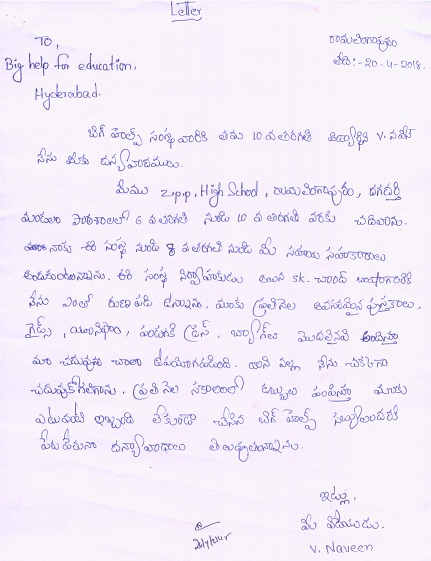 Letter
TO,
రామలింగాపురం
Big help for education,
తేది:- 20-4-2018.
Hyderabad.
బిగ్ హెల్ప్ సంస్థ వారికి 10 వ తరగతి విద్యార్థి V. నవీన్
నేను మీకు ధన్యవాదములు.
మేము Z.P.P, High School, రామలింగాపురం, దగదర్తి
మండలం పాఠశాలలో 6 వ తరగతి నుండి 10 వ తరగతి వరకు చదివాను.
నాకు ఈ సంస్థ నుండి 8 వ తరగతి నుండి మీ సహాయ సహకారాలు
అందుకుంటున్నాను. ఈ సంస్థ నిర్వాహకుడు అయిన SK. చాంద్ బాషాగారికి
నేను ఎంతో రుణపడి ఉన్నాను. మాకు ప్రతినెల అవసరమైన పుస్తకాలు,
గైడ్స్, యూనిఫాం, పండుగకి డ్రస్, బ్యాగ్‌లు మొదలైనవి అందిస్తూ
మా చదువుకు చాలా ఉపయోగపడింది. దాని వల్ల నేను చక్కగా
చదువుకోగలిగాను. ప్రతి నెల సకాలంలో డబ్బులు పంపిస్తూ మాకు
ఎటువంటి ఇబ్బంది లేకుండా చేసిన బిగ్ హెల్ప్ సభ్యులందరికీ
పేరు పేరునా ధన్యావాదాలు తెలుపుతున్నాను.
ఇట్లు,
మీ విధేయుడు.
V. Naveen